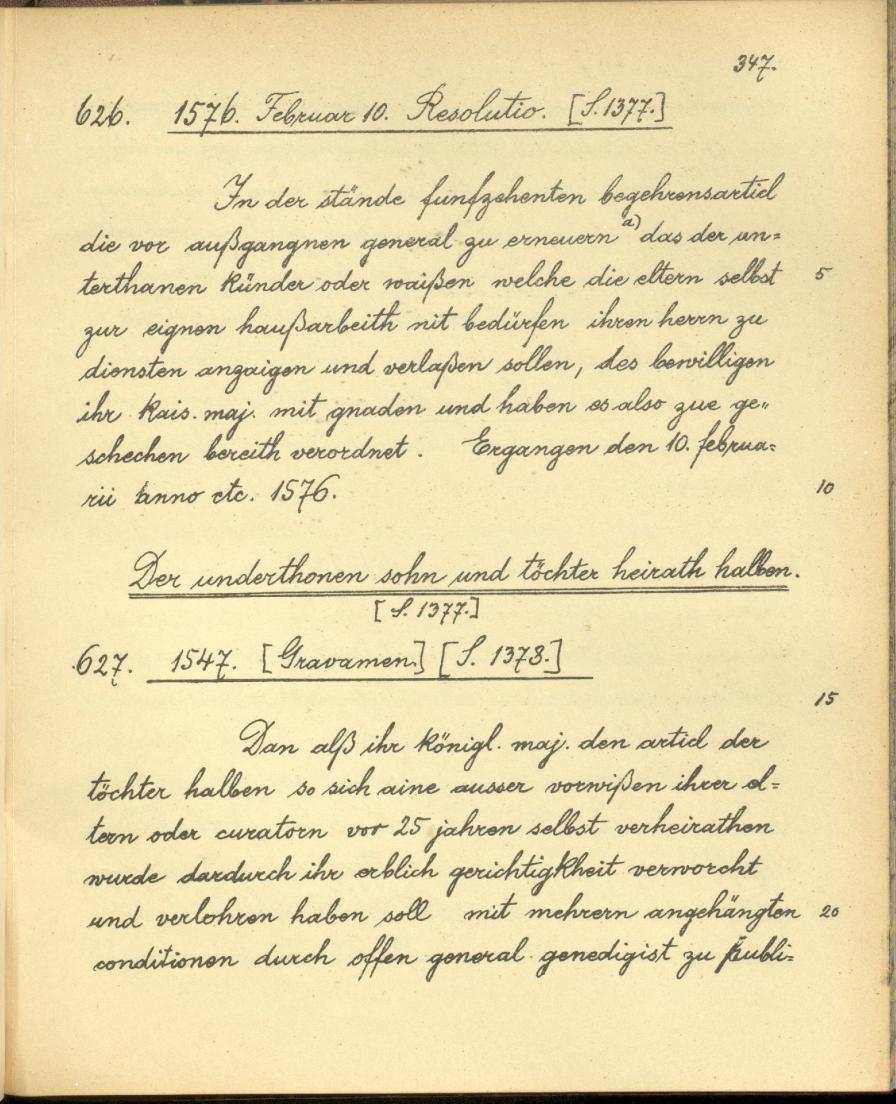 347.
626. 1576. Februar 10. Resolutio. [S. 1377.]
In der stände funfzehenten begehrensarticl
die vor außgangnen general zu erneuern a) das der un=
terthanen künder oder waißen welche die eltern selbst 5
zur eignen haußarbeith nit bedürfen ihren herrn zu
diensten anzaigen und verlaßen sollen, des bewilligen
ihr kais. maj. mit gnaden und haben es also zue ge„
schechen bereith verordnet. Ergangen den 10. februa=
rii anno etc. 1576. 10
Der underthonen sohn und töchter heirath halben.
[S. 1377.]
627. 1547. [Gravamen.] [S. 1378.]
15
Dan alß ihr königl. maj. den articl der
töchter halben so sich aine ausser vorwißen ihrer el=
tern oder curatorn vor 25 jahren selbst verheirathen
wurde dardurch ihr erblich gerichtigkheit verworcht
und verlohren haben soll mit mehrern angehängten 20
conditionen durch offen general genedigist zu publi=